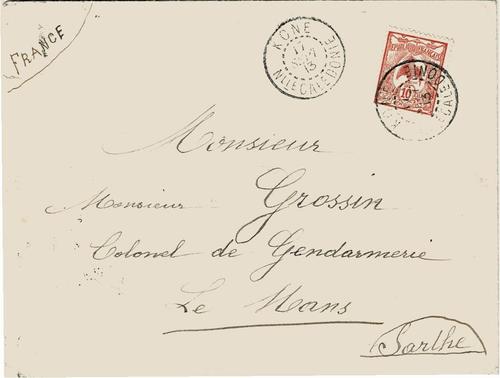 FRANCE
KONE
17
13
NLLE CALEDONIE
REPUBLIQUE FRANÇAISE
10
CALEDONIE
Monsieur
Monsieur Grossin
Colonel de Gendarmerie
Le Mans
Sarthe